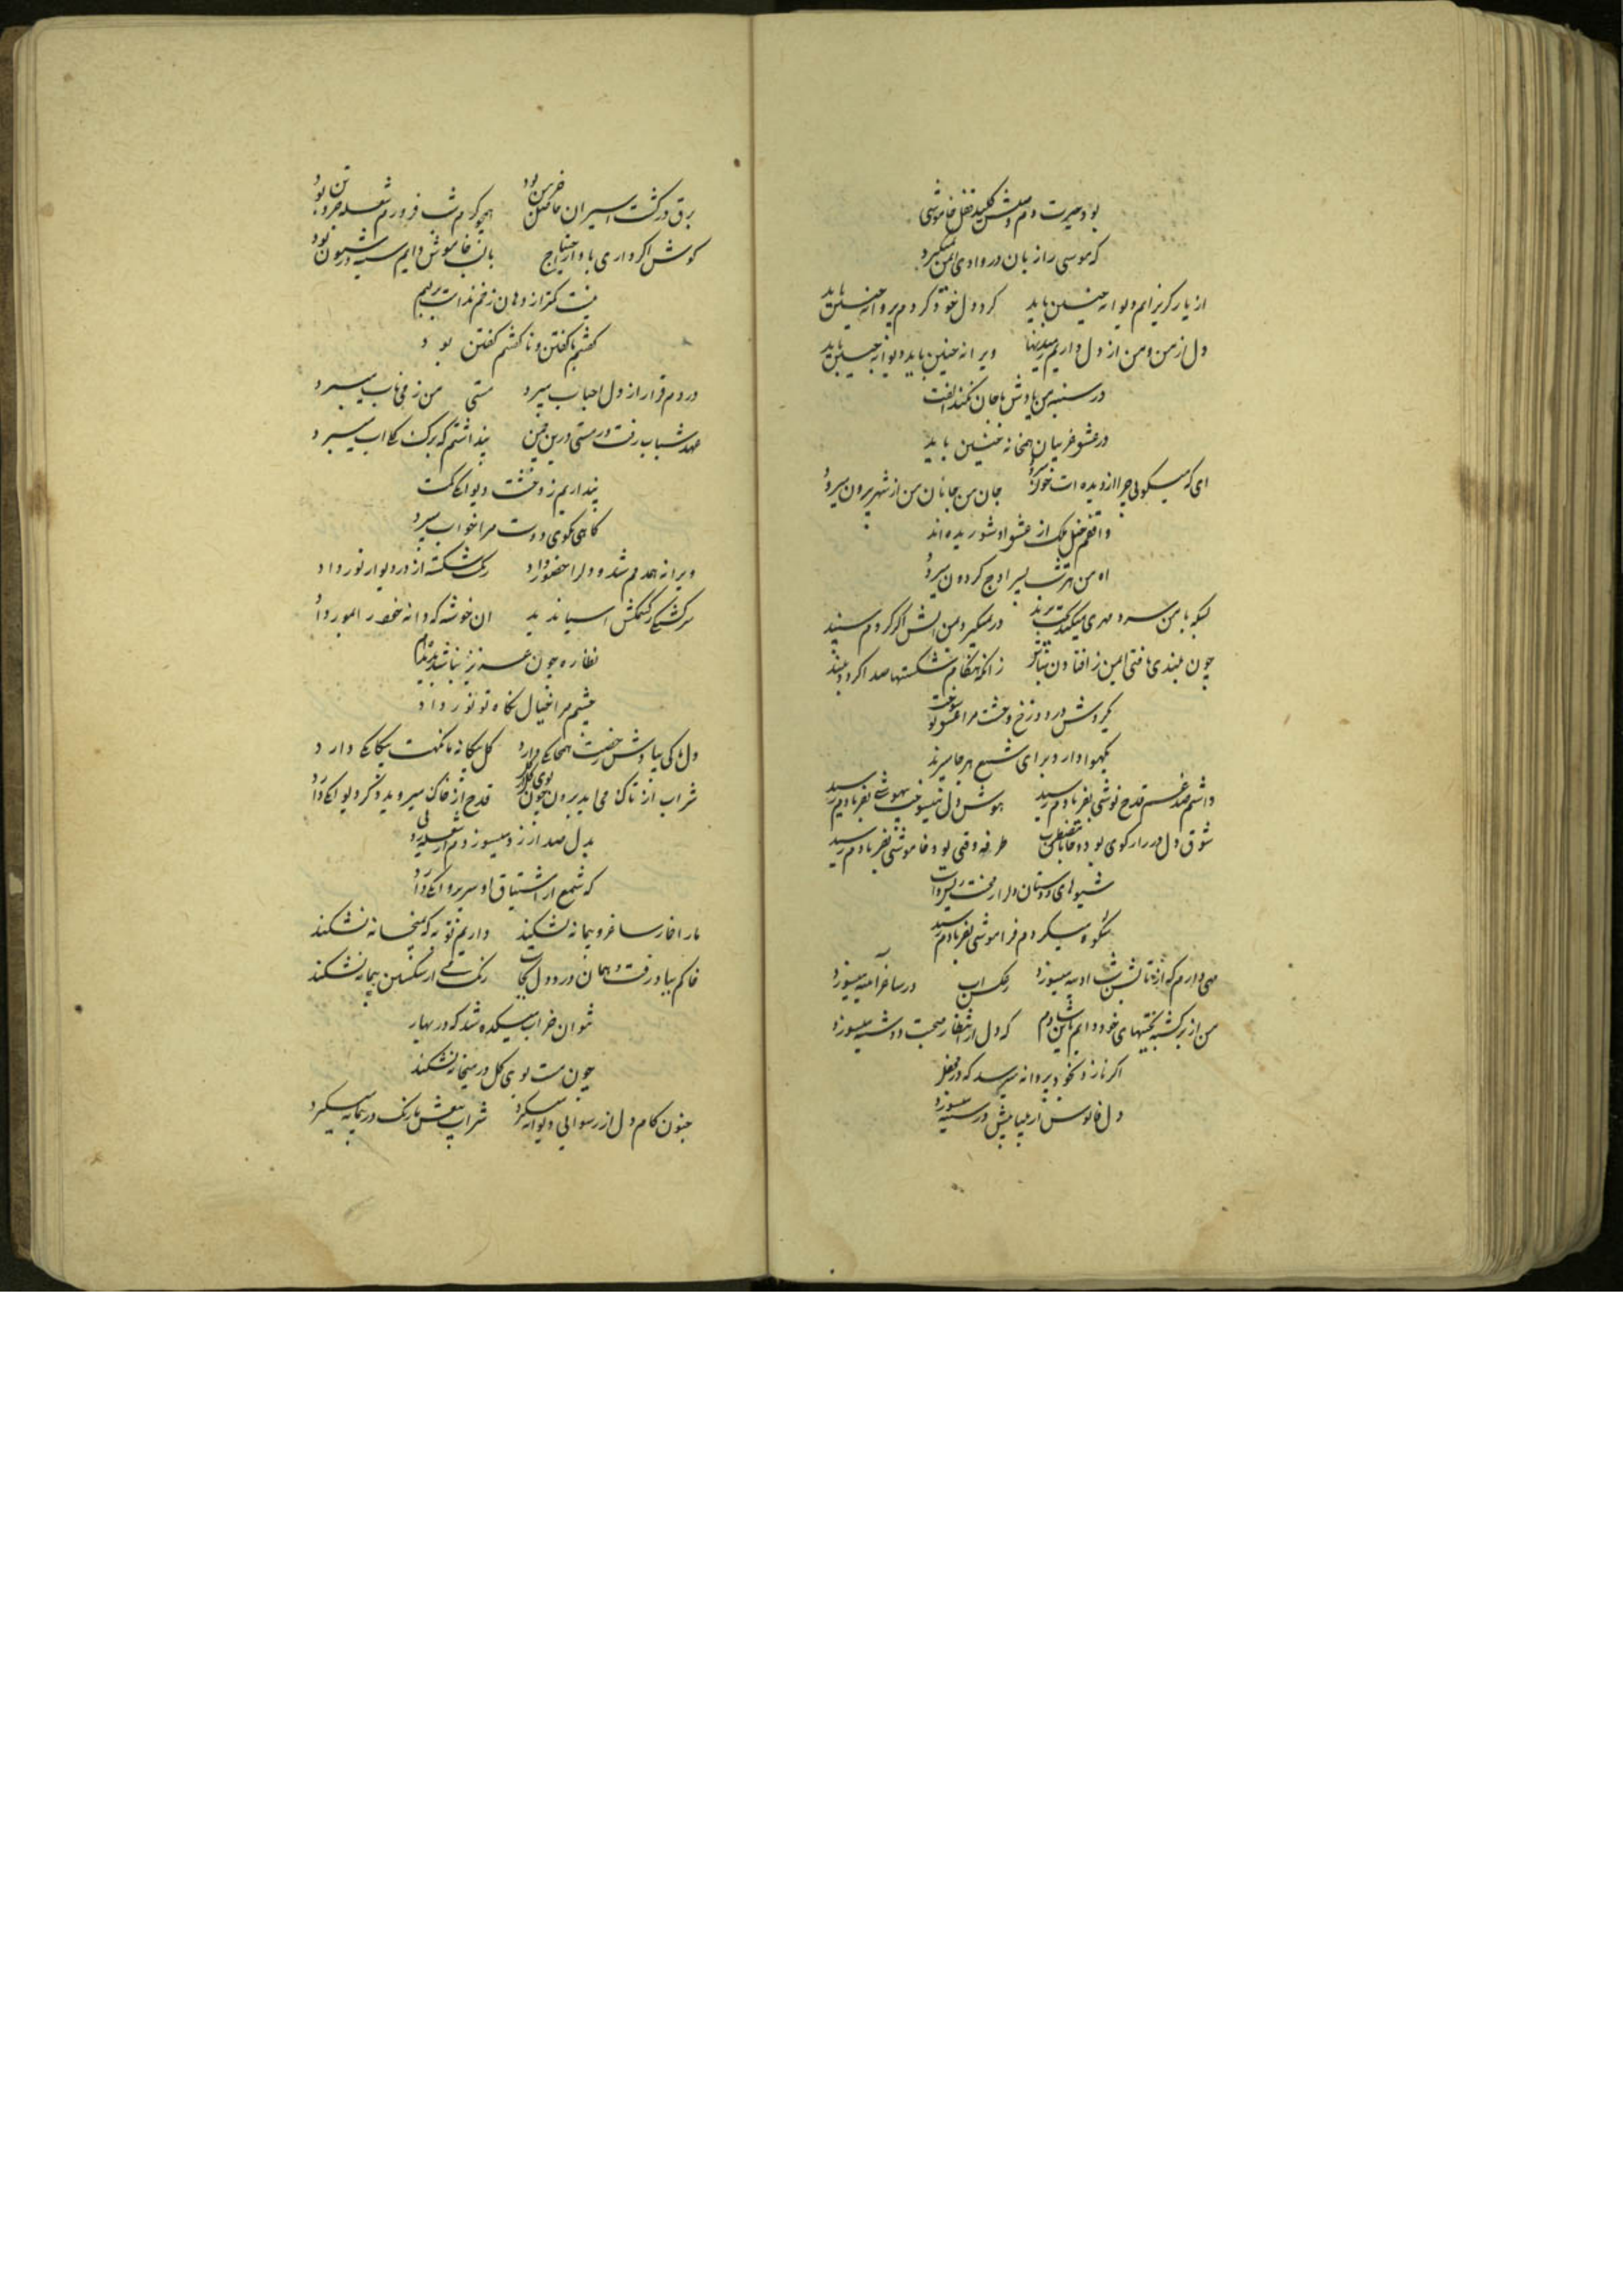 بود حیرت دم وصلش کلید قفل خاموشی
که موسی را زبان در وادی ایمن نمیکیرد
از یار کریزانم دیوانه چنین باید کرد دل خود کردم پروانه چنین باید
دل از من و من از دل داریم ویرانه چنین باید دیوانه چنین باید
در سینه من یادش با جان نکند الفت
در عشق غریبان همخانه چنین باید
ای که میکویی چرا از دیده ات خون میرود جان من جانان من از شهر بیرون میرود
واقفم خیل ملک از عشق او شوریده اند
اه من هر شب بسیر اوج کردون میرود
بسکه با من سرد مهری میکند در نمیکیرد بمن اتش اکر کردم سپند
چون بلندی یافتی ایمن ز افتادن مباش زانکه هنکام شکستها صدا کردد بلند
کردش در دوزخ وحشت مرا عشق تو سوخت
یکهوا دارد برای شمع هر جا میرند
داشتم صد غم قدح نوشی بفریادم رسید هوش دل میسوخت بیهوشی بفریادم رسید
شوق دل در راز کوی بود و ما طرفه وقتی بود خاموشی بفریادم رسید
شیوهای دوستان
شکوه میکردم فراموشی بفریادم رسید
مهی دارم که از تابش شب ادینه میسوزد ز عکس اب در ساغر آینه میسوزد
من از برکشته بختیهای خود دایم باین شادم که دل از انتظار صحبت دوشینه میسوزد
اکر نازد بخود پروانه میرسد که در محفل
دل فانوس از بیتابیش در سینه میسوزد
برق در کشت اسیران حاصل خرمن بود همچو کرم شب فروزم شعله جزو تن بود
کوش اکر داری بیاواز با لب خاموش دایم سینه در شیون بود
نیست کمتر از دهان زخم
کفتم ناکفتن و ناکفتنم کفتن بود
دردم قرار از دل احباب میبرد مستی من ز می ناب میبرد
عهد شباب رفت و مستی درین چمن پنداشتم که برک کل اب میبرد
بیداریم ز وحشت دیوانکی کمست
کاهی بکوی دوست مرا خواب میبرد
ویرانه همدمم شد و دلرا حضور داد رنک شکسته از در و دیوار نور داد
سرکشتکی کشمکش اسیا ندید ان خوشه که دانه خود را بمور داد
نظاره چون عزیز نباشد
چشم مرا خیال نکاه تو نور داد
دل ما کی بیادش رخصت همخانکی دارد کل بیکانه ما نکهت بیکانکی دارد
شراب از تاک می اید برون چون بوی کل قدح از خاک میروید و کرد دیوانکی دارد
بدل صد ارزو میسوزدم از شعله
که شمع از اشتیاق او سر پروانکی دارد
ما را خمار ساغر و پیمانه نشکند داریم توبه که میخانه نشکند
خاکم بباد رفت و همان درد دل بجاست رنک می از شکستن پیمانه نشکند
نتوان خراب میکده شد که در بهار
چون مست بوی کل در میخانه نشکند
جنون کام دل از رسوایی دیوانه میکیرد شراب بیغش ما رنک در پیمانه میکیرد